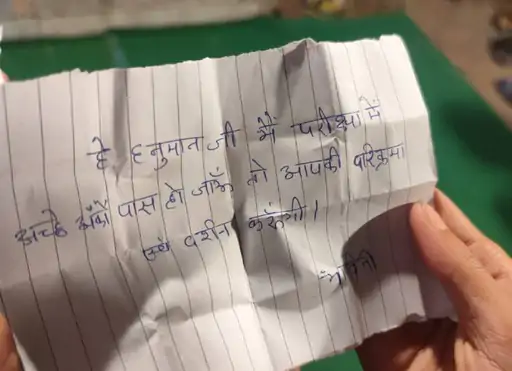 हे हनुमान जी मैं परीक्षा में
अच्छे अंकों पास हो जाऊँ तो आपकी परिक्रमा
एवं दर्शन करूंगी।